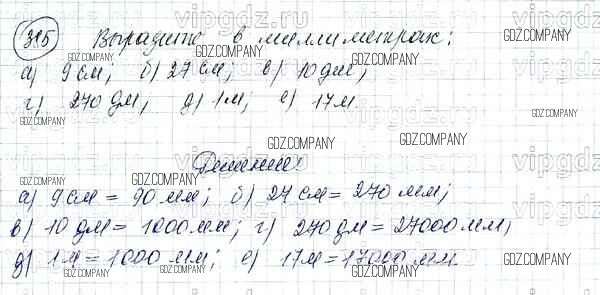 385 Выразите в миллиметрах:
а) 9 см; б) 27 см; в) 10 дм;
г) 270 дм; д) 1 м; е) 17 м.
Решение:
а) 9 см = 90 мм; б) 27 см = 270 мм;
в) 10 дм = 1000 мм; г) 270 дм = 27000 мм;
д) 1 м = 1000 мм; е) 17 м = 17000 мм